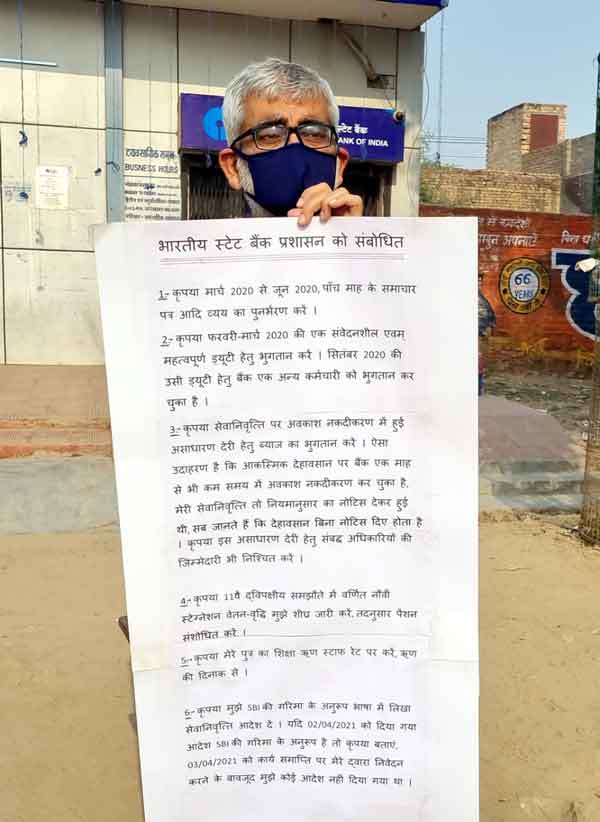 स्टेट बैंक
BANK OF INDIA
व्यवसायिक समय
BUSINESS HOURS
66
YEARS
भारतीय स्टेट बैंक प्रशासन को संबोधित
1:- कृपया मार्च 2020 से जून 2020, पाँच माह के समाचार
पत्र आदि व्यय का पुनर्भरण करें ।
2:- कृपया फरवरी-मार्च 2020 की एक संवेदनशील एवम्
महत्वपूर्ण ड्यूटी हेतु भुगतान करें । सितंबर 2020 की
उसी ड्यूटी हेतु बैंक एक अन्य कर्मचारी को भुगतान कर
चुका है ।
3:- कृपया सेवानिवृत्ति पर अवकाश नकदीकरण में हुई
असाधारण देरी हेतु ब्याज का भुगतान करें । ऐसा
उदाहरण है कि आकस्मिक देहावसान पर बैंक एक माह
से भी कम समय में अवकाश नकदीकरण कर चुका है,
मेरी सेवानिवृत्ति तो नियमानुसार का नोटिस देकर हुई
थी, सब जानते हैं कि देहावसान बिना नोटिस दिए होता है
। कृपया इस असाधारण देरी हेतु संबद्ध अधिकारियों की
जिम्मेदारी भी निश्चित करें ।
4:- कृपया 11वें द्विपक्षीय समझौते में वर्णित नौंवी
स्टेग्नेशन वेतन-वृद्धि मुझे शीघ्र जारी करें, तदनुसार पेंशन
संशोधित करें ।
5:- कृपया मेरे पुत्र का शिक्षा ऋण स्टाफ रेट पर करें, ऋण
की दिनांक से ।
6:- कृपया मुझे SBI की गरिमा के अनुरूप भाषा में लिखा
सेवानिवृत्ति आदेश दें । यदि 02/04/2021 को दिया गया
आदेश SBI की गरिमा के अनुरूप है तो कृपया बताएं,
03/04/2021 को कार्य समाप्ति पर मेरे द्वारा निवेदन
करने के बावजूद मुझे कोई आदेश नहीं दिया गया था ।